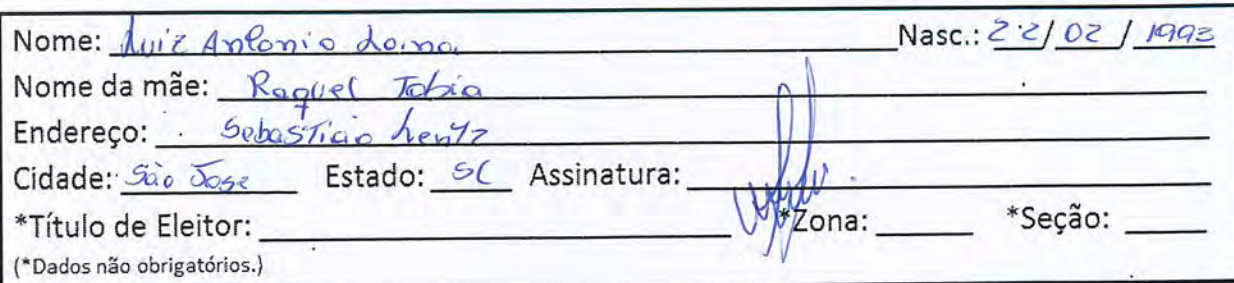 Nome: Luiz Antonio Nasc.: 22/02/1993
Nome da mãe: Raquel Tobia
Endereço: Sebastião Lentz
Cidade: São Jose Estado: SC Assinatura:
*Título de Eleitor: *Zona: *Seção:
(*Dados não obrigatórios.)